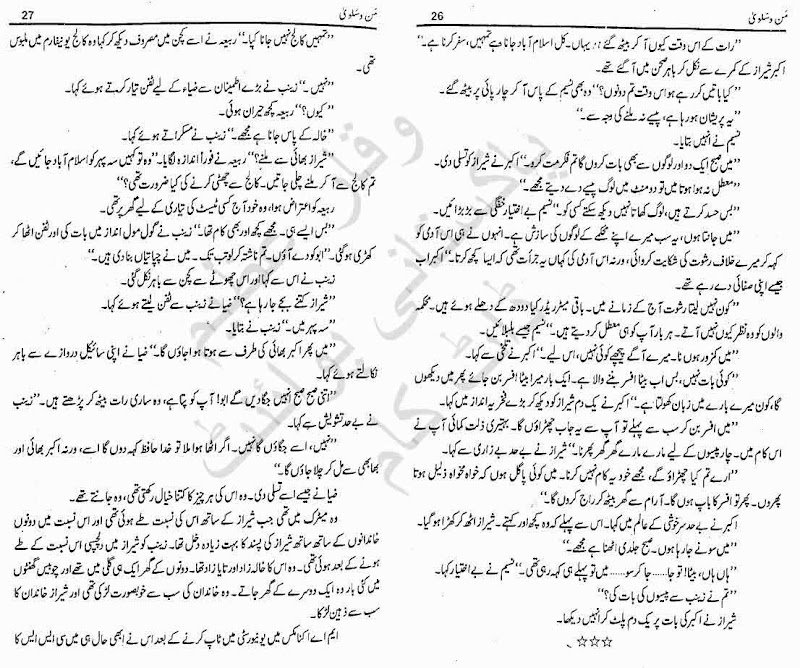 مَن وسَلویٰ
26
"رات کے اس وقت کیوں آ کر بیٹھ گئے ہو یہاں۔ کل اسلام آباد جانا ہے تمہیں، سفر کرنا ہے۔"
اکبر شیراز کے کمرے سے نکل کر باہر صحن میں آ گئے تھے۔
"کیا باتیں کر رہے ہو اس وقت تم دونوں؟" وہ بھی نسیم کے پاس آ کر چارپائی پر بیٹھ گئے۔
"یہ پریشان ہو رہا ہے، پیسے نہ ملنے کی وجہ سے۔"
نسیم نے انہیں بتایا۔
"میں صبح ایک دو اور لوگوں سے بھی بات کروں گا تم فکر مت کرو۔" اکبر نے شیراز کو تسلی دی۔
"معطل نہ ہوا ہوتا میں تو دو منٹ میں لوگ پیسے دے دیتے مجھے۔"
"بس حسد کرتے ہیں، لوگ کھاتا نہیں دیکھ سکتے کسی کو۔" نسیم بے اختیار خفگی سے بڑبڑائیں۔
"میں جانتا ہوں، یہ سب میرے اپنے محکمے کے لوگوں کی سازش ہے۔ انہوں نے ہی اس آدمی کو
کہہ کر میرے خلاف رشوت کی شکایت کروائی، ورنہ اس آدمی کی کہاں یہ جرأت تھی کہ ایسا کچھ کرتا۔" اکبر اب
جیسے اپنی صفائی دے رہے تھے۔
"کون نہیں لیتا رشوت آج کے زمانے میں۔ باقی میٹر ریڈر کیا دودھ کے دھلے ہوئے ہیں۔ محکمہ
والوں کو وہ نظر کیوں نہیں آتے۔ ہر بار آپ کو ہی معطل کر دیتے ہیں۔" نسیم جیسے بلبلائیں۔
"میں کمزور ہوں نا۔ میرے آگے پیچھے کوئی نہیں، اس لیے۔" اکبر نے تلخی سے کہا۔
"کوئی بات نہیں، بس اب بیٹا افسر بننے والا ہے۔ ایک بار میرا بیٹا افسر بن جائے پھر میں دیکھوں
گا، کون میرے بارے میں زبان کھولتا ہے۔" اکبر نے یک دم شیراز کو دیکھ کر بڑے فخریہ انداز میں کہا۔
"میں افسر بن کر سب سے پہلے تو آپ سے یہ جاب چھڑاؤں گا۔ بہتیری ذلت کمائی آپ نے
اس کام میں۔ چار پیسوں کے لیے مارے مارے گھر گھر پھرنا۔" شیراز نے بے حد بے زاری سے کہا۔
"ارے تم کیا چھڑاؤ گے، مجھے خود یہ کام نہیں کرنا۔ میں کوئی پاگل ہوں کہ خواہ مخواہ ذلیل ہوتا
پھروں۔ پھر تو افسر کا باپ ہوں گا۔ آرام سے گھر بیٹھ کر راج کروں گا۔"
اکبر نے بے حد سرخوشی کے عالم میں کہا۔ اس سے پہلے کہ وہ کچھ اور کہتے۔ شیراز اٹھ کر کھڑا ہو گیا۔
"میں سونے جا رہا ہوں۔ صبح جلدی اٹھنا ہے مجھے۔"
"ہاں ہاں، بیٹا! تو جا...... جا کر سو...... میں تو پہلے ہی کہہ رہی تھی۔" نسیم نے بے اختیار کہا۔
"تم نے زینب سے پیسوں کی بات کی؟"
شیراز نے اکبر کی بات پر یک دم پلٹ کر انہیں دیکھا۔
☆☆☆
مَن وسَلویٰ
27
"تمہیں کالج نہیں جانا کیا۔" ربیعہ نے اسے کچن میں مصروف دیکھ کر کہا وہ کالج یونیفارم میں ملبوس
تھی۔
"نہیں۔" زینب نے بڑے اطمینان سے ضیاء کے لیے لفن تیار کرتے ہوئے کہا۔
"کیوں؟" ربیعہ کچھ حیران ہوئی۔
"خالہ کے پاس جانا ہے مجھے۔" زینب نے مسکراتے ہوئے کہا۔
"شیراز بھائی سے ملنے؟" ربیعہ نے فوراً اندازہ لگایا۔ "وہ تو کہیں سہ پہر کو اسلام آباد جائیں گے،
تم کالج سے آ کر ملنے چلی جاتیں۔ کالج سے چھٹی کرنے کی کیا ضرورت تھی؟"
ربیعہ کو اعتراض ہوا، وہ خود آج کسی ٹیسٹ کی تیاری کے لیے گھر پر تھی۔
"بس ایسے ہی۔ مجھے کچھ اور بھی کام تھا۔" زینب نے گول مول انداز میں بات کی اور لفن اٹھا کر
کھڑی ہو گئی۔ "ابو کو دے آؤں۔ تم ناشتہ کر لو تب تک۔ میں نے چپاتیاں بنا دی ہیں۔"
زینب نے اس سے کہا اور اس چھوٹے سے کچن سے باہر نکل گئی۔
"شیراز کتنے بجے جا رہا ہے؟" ضیا نے زینب سے لفن لیتے ہوئے کہا۔
"سہ پہر میں۔" زینب نے بتایا۔
"میں پھر اکبر بھائی کی طرف سے ہوتا ہوا جاؤں گا۔" ضیا نے اپنی سائیکل دروازے سے باہر
نکالتے ہوئے کہا۔
"اتنی صبح صبح انہیں جگا دیں گے ابو! آپ کو پتا ہے، وہ ساری رات بیٹھ کر پڑھتے ہیں۔" زینب
نے بے حد تشویش سے کہا۔
"نہیں، اسے جگاؤں گا نہیں۔ اگر اٹھا ہوا ملا تو خدا حافظ کہہ دوں گا اسے، ورنہ اکبر بھائی اور
بھابھی سے مل کر چلا جاؤں گا۔"
ضیا نے جیسے اسے تسلی دی۔ وہ اس کی ہر چیز کا کتنا خیال رکھتی تھی، وہ جانتے تھے۔
وہ میٹرک میں تھی جب شیراز کے ساتھ اس کی نسبت طے ہوئی تھی اور اس نسبت میں دونوں
خاندانوں کے ساتھ ساتھ شیراز کی پسند کا بہت زیادہ دخل تھا۔ زینب کو شیراز میں دلچسپی اس نسبت کے طے
ہونے کے بعد ہوئی تھی۔ وہ اس کا خالہ زاد اور تایا زاد تھا۔ دونوں کے گھر ایک ہی گلی میں تھے اور چوبیس گھنٹوں
میں کئی بار وہ ایک دوسرے کے گھر جاتے۔ وہ خاندان کی سب سے خوبصورت لڑکی تھی اور شیراز خاندان کا
سب سے ذہین لڑکا۔
ایم اے اکنامکس میں یونیورسٹی میں ٹاپ کرنے کے بعد اس نے ابھی حال ہی میں سی ایس ایس کا